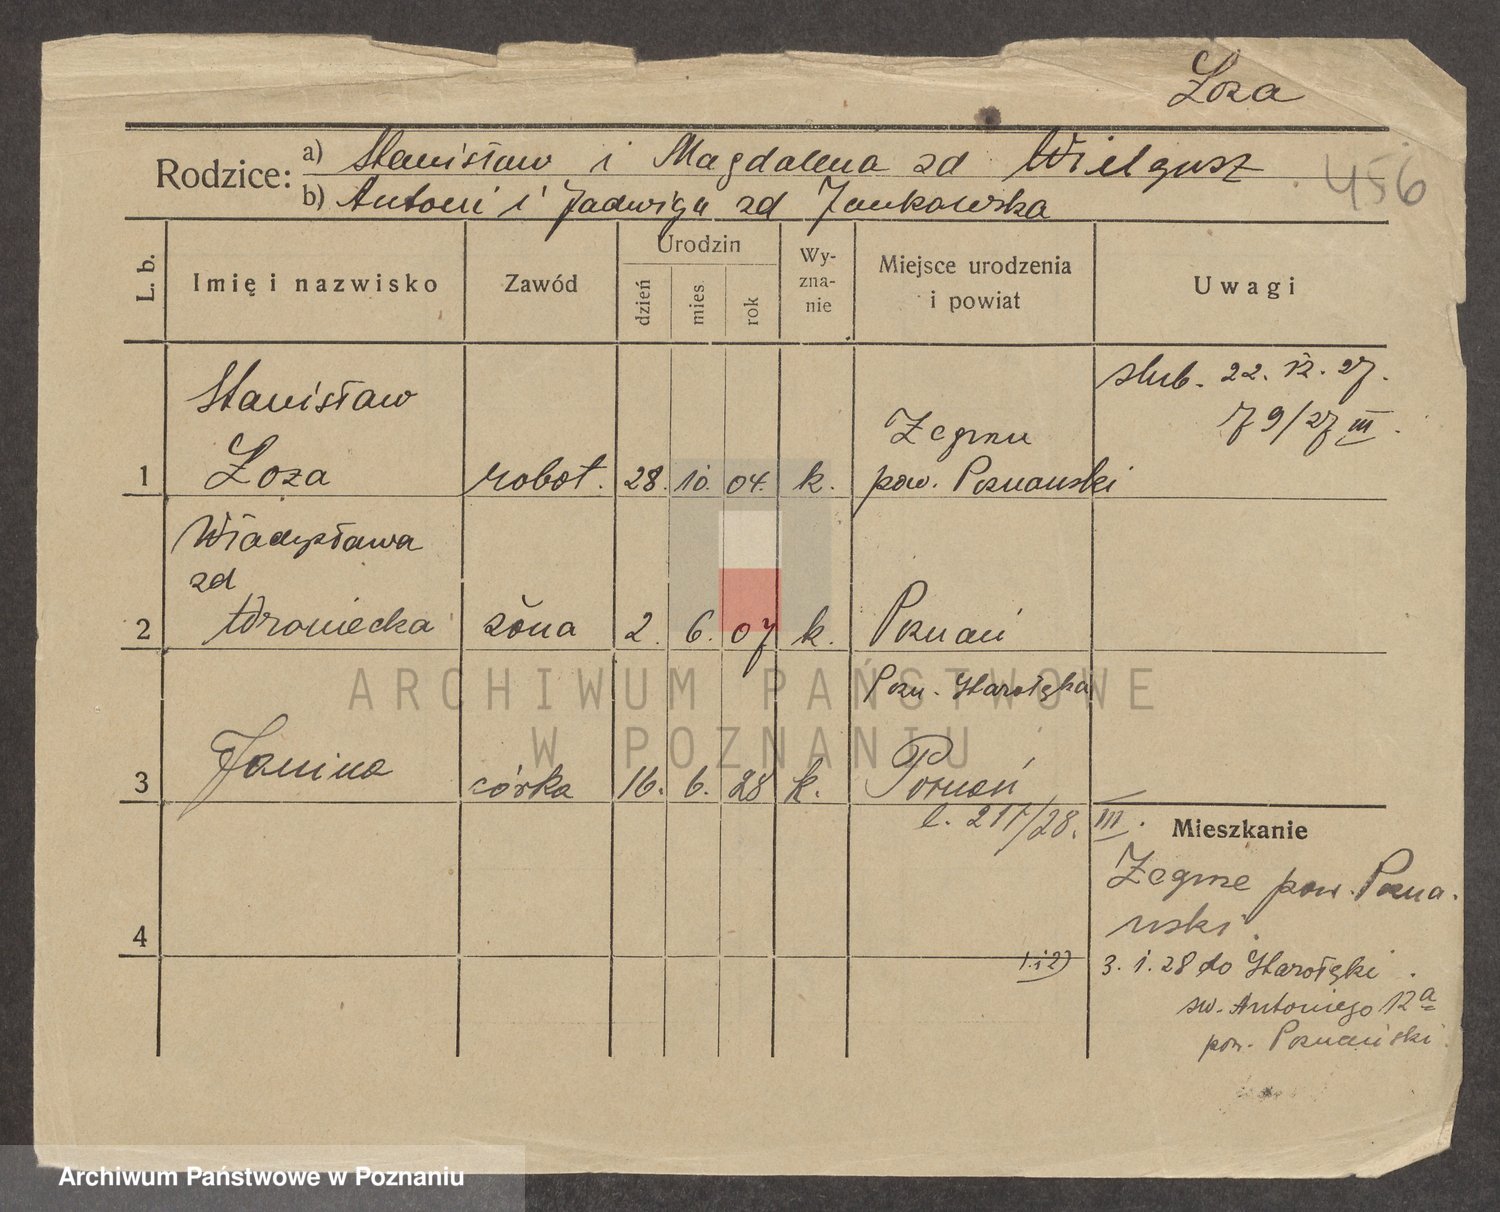 Łoza
Rodzice: a) Stanisław i Magdalena zd Wielgusz
456
b) Antoni i Jadwiga zd Jankowska
L. b.
Imię i nazwisko
Zawód
Urodzin
dzień
mies.
rok
Wy-
zna-
nie
Miejsce urodzenia
i powiat
Uwagi
ślub. 22. 12. 27.
79/27 III.
Stanisław
Łoza
1
robot. 28. 10. 04. k.
Zegrzu
pow. Poznański
Władysława
zd
2
żona 2. 6. 07 k. Poznań
Pozn. Starołęka
3 Janina córka 16. 6. 28 k. Poznań
l. 211/28. III.
Mieszkanie
Zegrze pow. Pozna-
ński.
4
1. i 2) 3. 1. 28 do Starołęki
św. Antoniego 12a
pow. Poznański.
ARCHIWUM PAŃSTWOWE
W POZNANIU
Archiwum Państwowe w Poznaniu